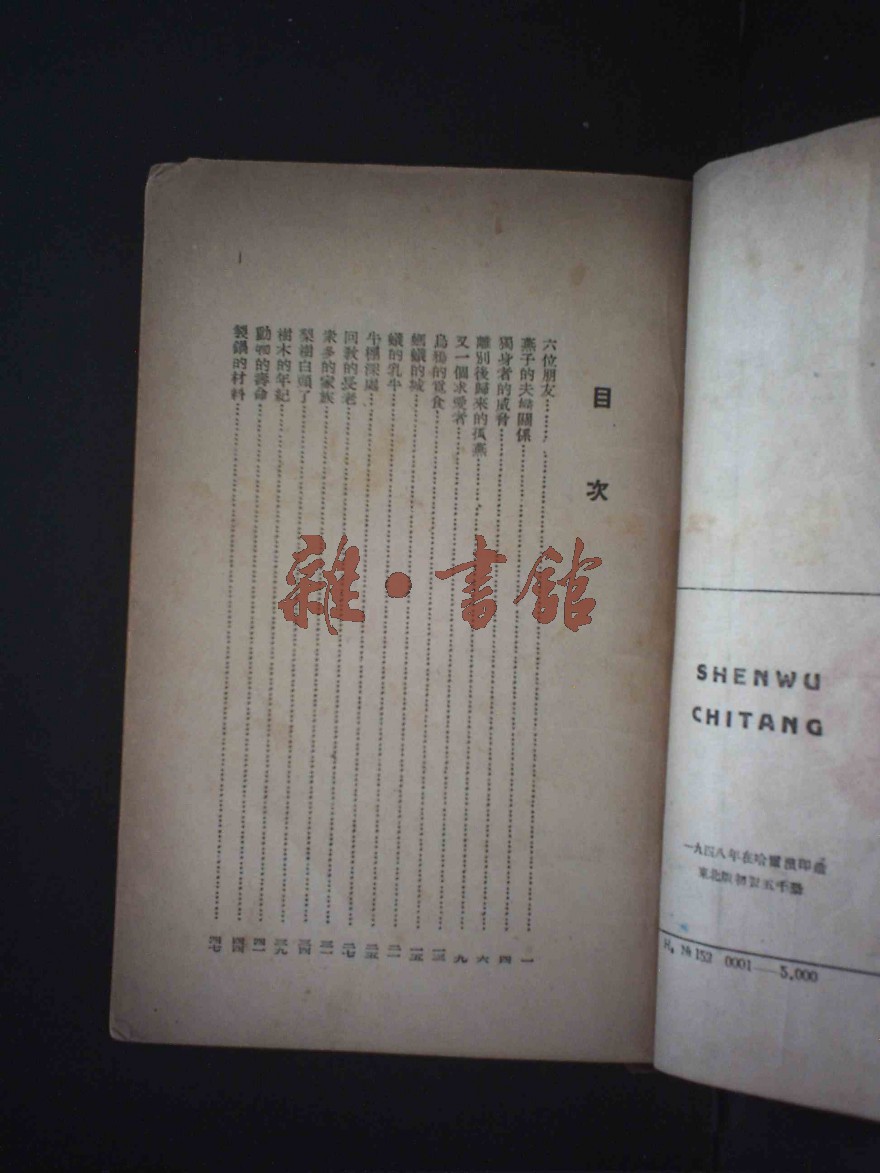 目次
六位朋友……一
燕子的夫婦關係……四
獨身者的威脅……六
離別後歸來的孤燕……九
又一個求愛者……一三
的食……一五
螞蟻的城……二一
蟻的乳牛……二五
牛欄深處……二七
回教的長老……三一
衆多的家族……三四
梨樹白頭了……三九
樹木的年紀……四一
動物的壽命……四四
製鍋的材料……四七
雜·書館
SHENWU
CHITANG
一九四八年在哈爾濱印造
東北版初版五千冊
H. № 152 0001—5.000